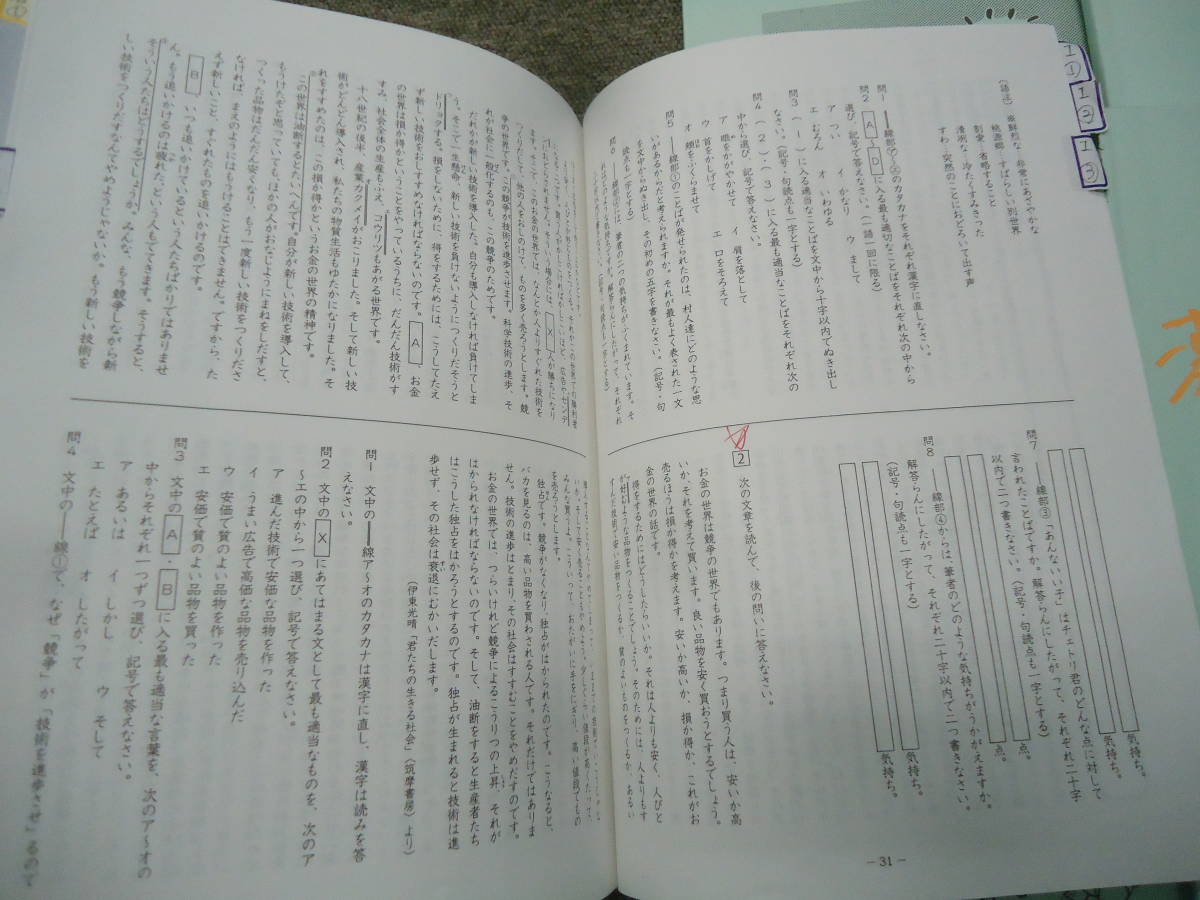 〈語注〉※鮮烈な…非常にあざやかな
桃源郷…すばらしい別世界
割愛…省略すること
清冽な…冷たくすみきった
すわ…突然のことにおどろいて出す声
問1 ――線部㋐〜㋓のカタカナをそれぞれ漢字に直しなさい。
問2 A〜Dに入る最も適切なことばをそれぞれ次の中から
選び、記号で答えなさい。（一語一回に限る）
ア つい イ かなり ウ まして
エ むろん オ いわゆる
問3 （1）に入る適当なことばを文中から十字以内でぬき出し
なさい。（記号・句読点も一字とする）
問4 （2）・（3）に入る最も適当なことばをそれぞれ次の
中から選び、記号で答えなさい。
ア 眼をかがやかせて イ 肩を落として
ウ 首をかしげて エ 口をそろえて
オ 頬をふくらませて
問5 ――線部①のことばが発せられたのは、村人達にどのような思
いがあるからだと考えられますか。それが最もよく表された一文
を文中からぬき出し、その初めの五字を書きなさい。（記号・句
読点も一字とする）
気持ち。
気持ち。
問7 ――線部③「あんないい子」はチェトリ君のどんな点に対して
言われたことばですか。解答らんにしたがって、それぞれ二十字
以内で二つ書きなさい。（記号・句読点も一字とする）
点。
点。
問8 ――線部④からは筆者のどのような気持ちがうかがえますか。
解答らんにしたがって、それぞれ二十字以内で二つ書きなさい。
（記号・句読点も一字とする）
気持ち。
気持ち。
2 次の文章を読んで、後の問いに答えなさい。
お金の世界は競争の世界でもあります。つまり買う人は、安いか高
いか、それを考えて買います。良い品物を安く買おうとするでしょう。
売るほうは損か得かを考えます。安いか高いか、損か得か、これがお
金の世界の話です。
得をするためにはどうしたらいいか。それは人よりも安く、人びと
が好むような品物をつくることでしょう。そのためには、人よりもす
－31－
争の世界です。この競争が技術を進歩させます。科学技術の進歩、そ
れが社会に一般化するのも、この競争のためです。
だれかが新しい技術を導入した。自分も導入しなければ負けてしま
う。そこで一生懸命、新しい技術を負けないようにつくりだそうと
ドリョクする。損をしないために、得をするためには、こうしてたえ
ず新しい技術をおしすすめなければならないのです。A、お金
の世界は損か得かということをやっているうちに、だんだん技術がす
すみ、社会全体の生産もふえ、コウリツもあがる世界です。
十八世紀の後半、産業カクメイがおこりました。そして新しい技
術がどんどん導入され、私たちの物質生活もゆたかになりました。そ
れをすすめたのは、この損か得かというお金の世界の精神です。
この世界は油断するとたいへんです。自分が新しい技術を導入して、
もうけたぞと思っていても、ほかの人がおなじようにまねをしだすと、
つくった品物はだんだん安くなり、もう一度新しい技術をつくりださ
なければ、まえのようにはもうけることはできません。ですから、た
えず新しいこと、すぐれたものを追いかけるのです。
B いつも追いかけているという人たちばかりではありませ
ん。もう追いかけるのは疲れた、という人もでてきます。そうすると、
そういう人たちはどうするでしょうか。みんな、もう競争しながら新
しい技術をつくりだすなんてやめようじゃないか。もう新しい技術を
を売ろうとします。
独占です。競争がなくなり、独占がはかられたのです。こうなると、
バカを見るのは、高い品物を買わされる人です。それだけではありま
せん。技術の進歩はとまり、その社会はすすむことをやめだすのです。
お金の世界では、つらいけれど競争によるこうりつの上昇、それが
はかられなければならないのです。そして、油断をすると生産者たち
はこうした独占をはかろうとするのです。独占が生まれると技術は進
歩せず、その社会は衰退にむかいだします。
（伊東光晴『君たちの生きる社会』〈筑摩書房〉より）
問1 文中の――線ア〜オのカタカナは漢字に直し、漢字は読みを答
えなさい。
問2 文中のXにあてはまる文として最も適当なものを、次のア
〜エの中から一つ選び、記号で答えなさい。
ア 進んだ技術で安価な品物を作った
イ うまい広告で高価な品物を売り込んだ
ウ 安価で質のよい品物を作った
エ 安価で質のよい品物を買った
問3 文中のA・Bに入る最も適当な言葉を、次のア〜オの
中からそれぞれ一つずつ選び、記号で答えなさい。
ア あるいは イ しかし ウ そして
エ たとえば オ したがって
問4 文中の――線①で、なぜ「競争」が「技術を進歩させ」るので